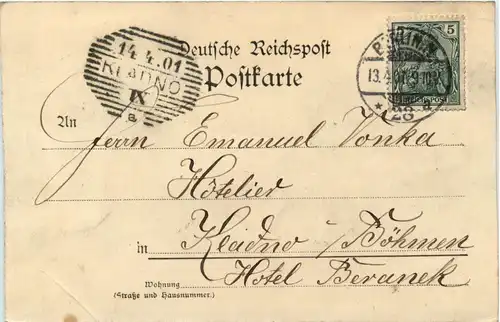 14.4.01
KLADNO
IX
a
Deutsche Reichspost
Postkarte
5
13.4.01. 9-10
* 28 a
An
Herrn Emanuel Vonka
Hôtelier
in Kladno Böhmen
Hotel Beranek
Wohnung
(Straße und Hausnummer.)